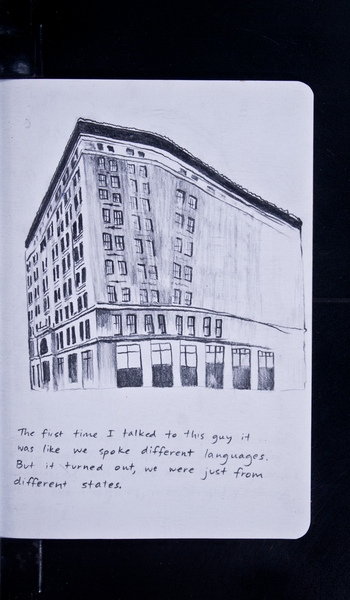 The first time I talked to this guy it
was like we spoke different languages.
But it turned out, we were just from
different states.